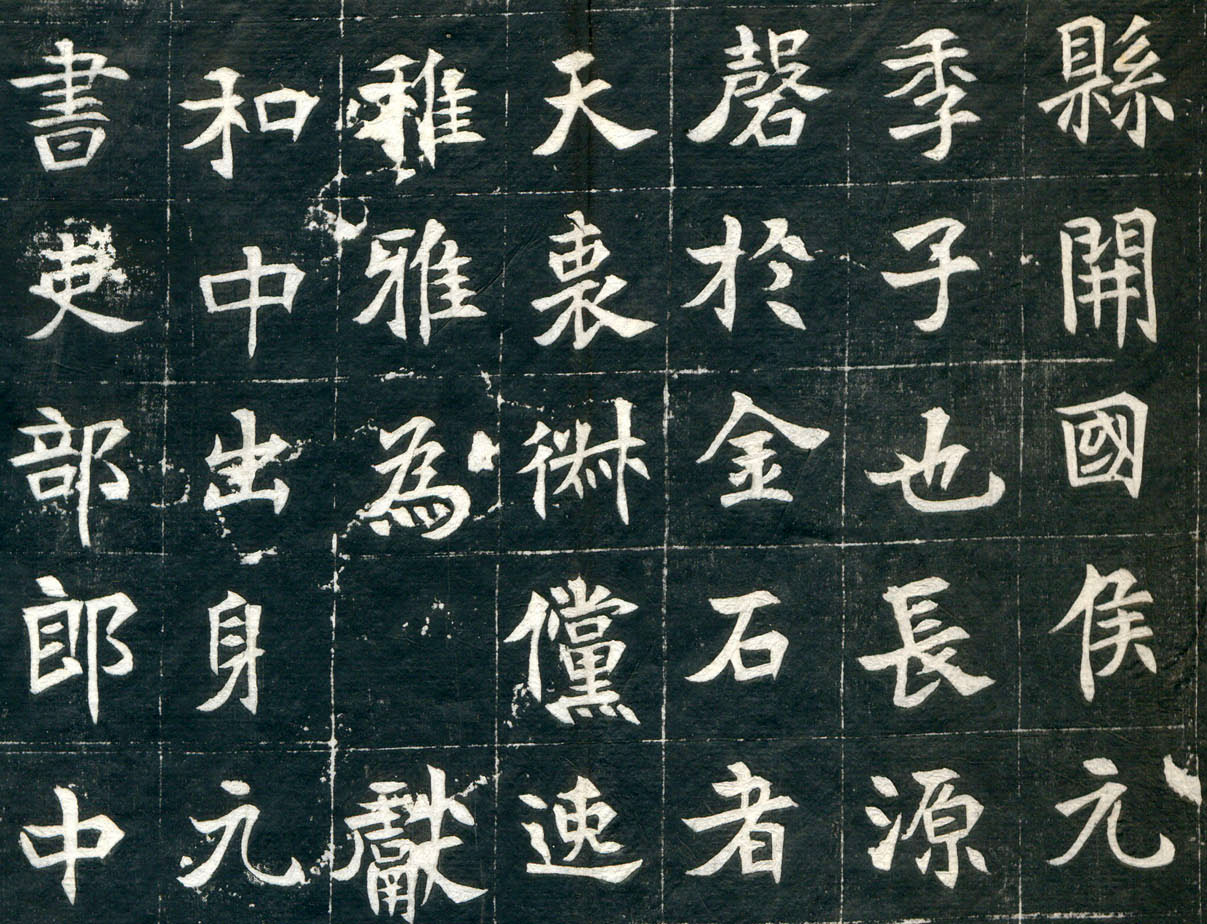 縣開國侯元
季子也長源
磬於金石者
天衷俶儻速
稚雅為獻
和中出身元
書吏部郎中